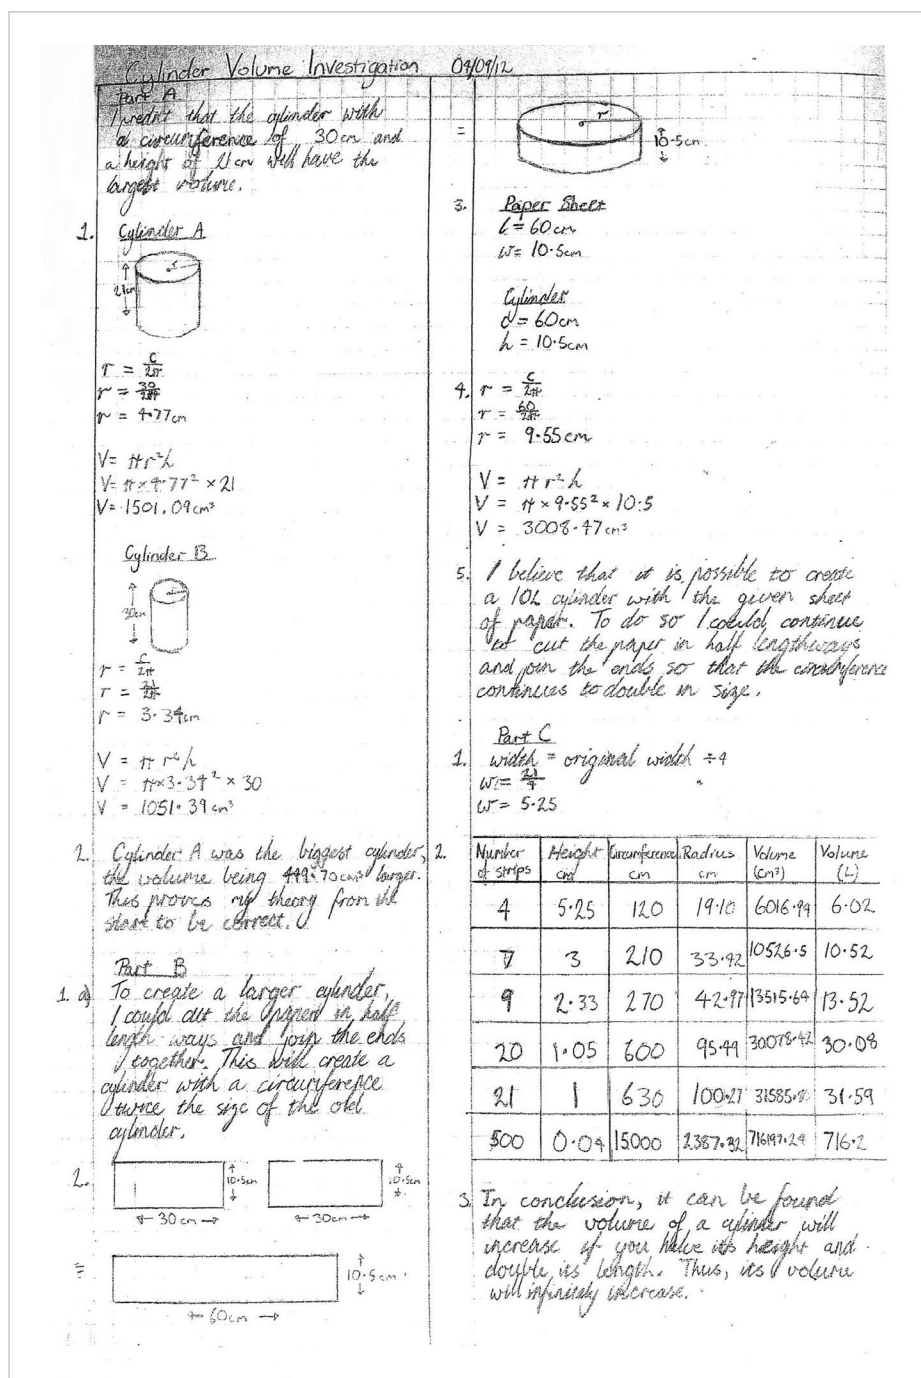 Cylinder Volume Investigation 04/09/12
Part A
I predict that the cylinder with
a circumference of 30cm and
a height of 21cm will have the
largest volume.
1. Cylinder A
r
21cm
r = C/2π
r = 30/2π
r = 4.77cm
V= πr²h
V= π×4.77² × 21
V= 1501.09cm³
Cylinder B
r
30cm
r = C/2π
r = 21/2π
r = 3.34cm
V = π r² h
V = π×3.34² × 30
V = 1051.39cm³
2. Cylinder A was the biggest cylinder,
the volume being 449.70cm³ larger.
This proves my theory from the
start to be correct.
Part B
1. a) To create a larger cylinder,
I could cut the paper in half
length ways and join the ends
together. This will create a
cylinder with a circumference
twice the size of the old
cylinder.
2. 10.5cm 10.5cm
30cm 30cm
= 10.5cm
60cm
= r 10.5cm
3. Paper Sheet
l = 60cm
w= 10.5cm
Cylinder
d = 60cm
h = 10.5cm
4. r = C/2π
r = 60/2π
r = 9.55cm
V = π r² h
V = π × 9.55² × 10.5
V = 3008.47cm³
5. I believe that it is possible to create
a 10L cylinder with the given sheet
of paper. To do so I could continue
to cut the paper in half lengthways
and join the ends so that the circumference
continues to double in size.
Part C
1. width = original width ÷4
w = 21/4
w = 5.25
2. Number of strips Height cm Circumference cm Radius cm Volume (cm³) Volume (L)
4 5.25 120 19.10 6016.94 6.02
7 3 210 33.42 10526.5 10.52
9 2.33 270 42.97 13515.64 13.52
20 1.05 600 95.49 30078.42 30.08
21 1 630 100.27 31.59
500 0.04 15000 2387.32 716197.24 716.2
3. In conclusion, it can be found
that the volume of a cylinder will
increase if you halve its height and
double its length. Thus, its volume
will infinitely increase.